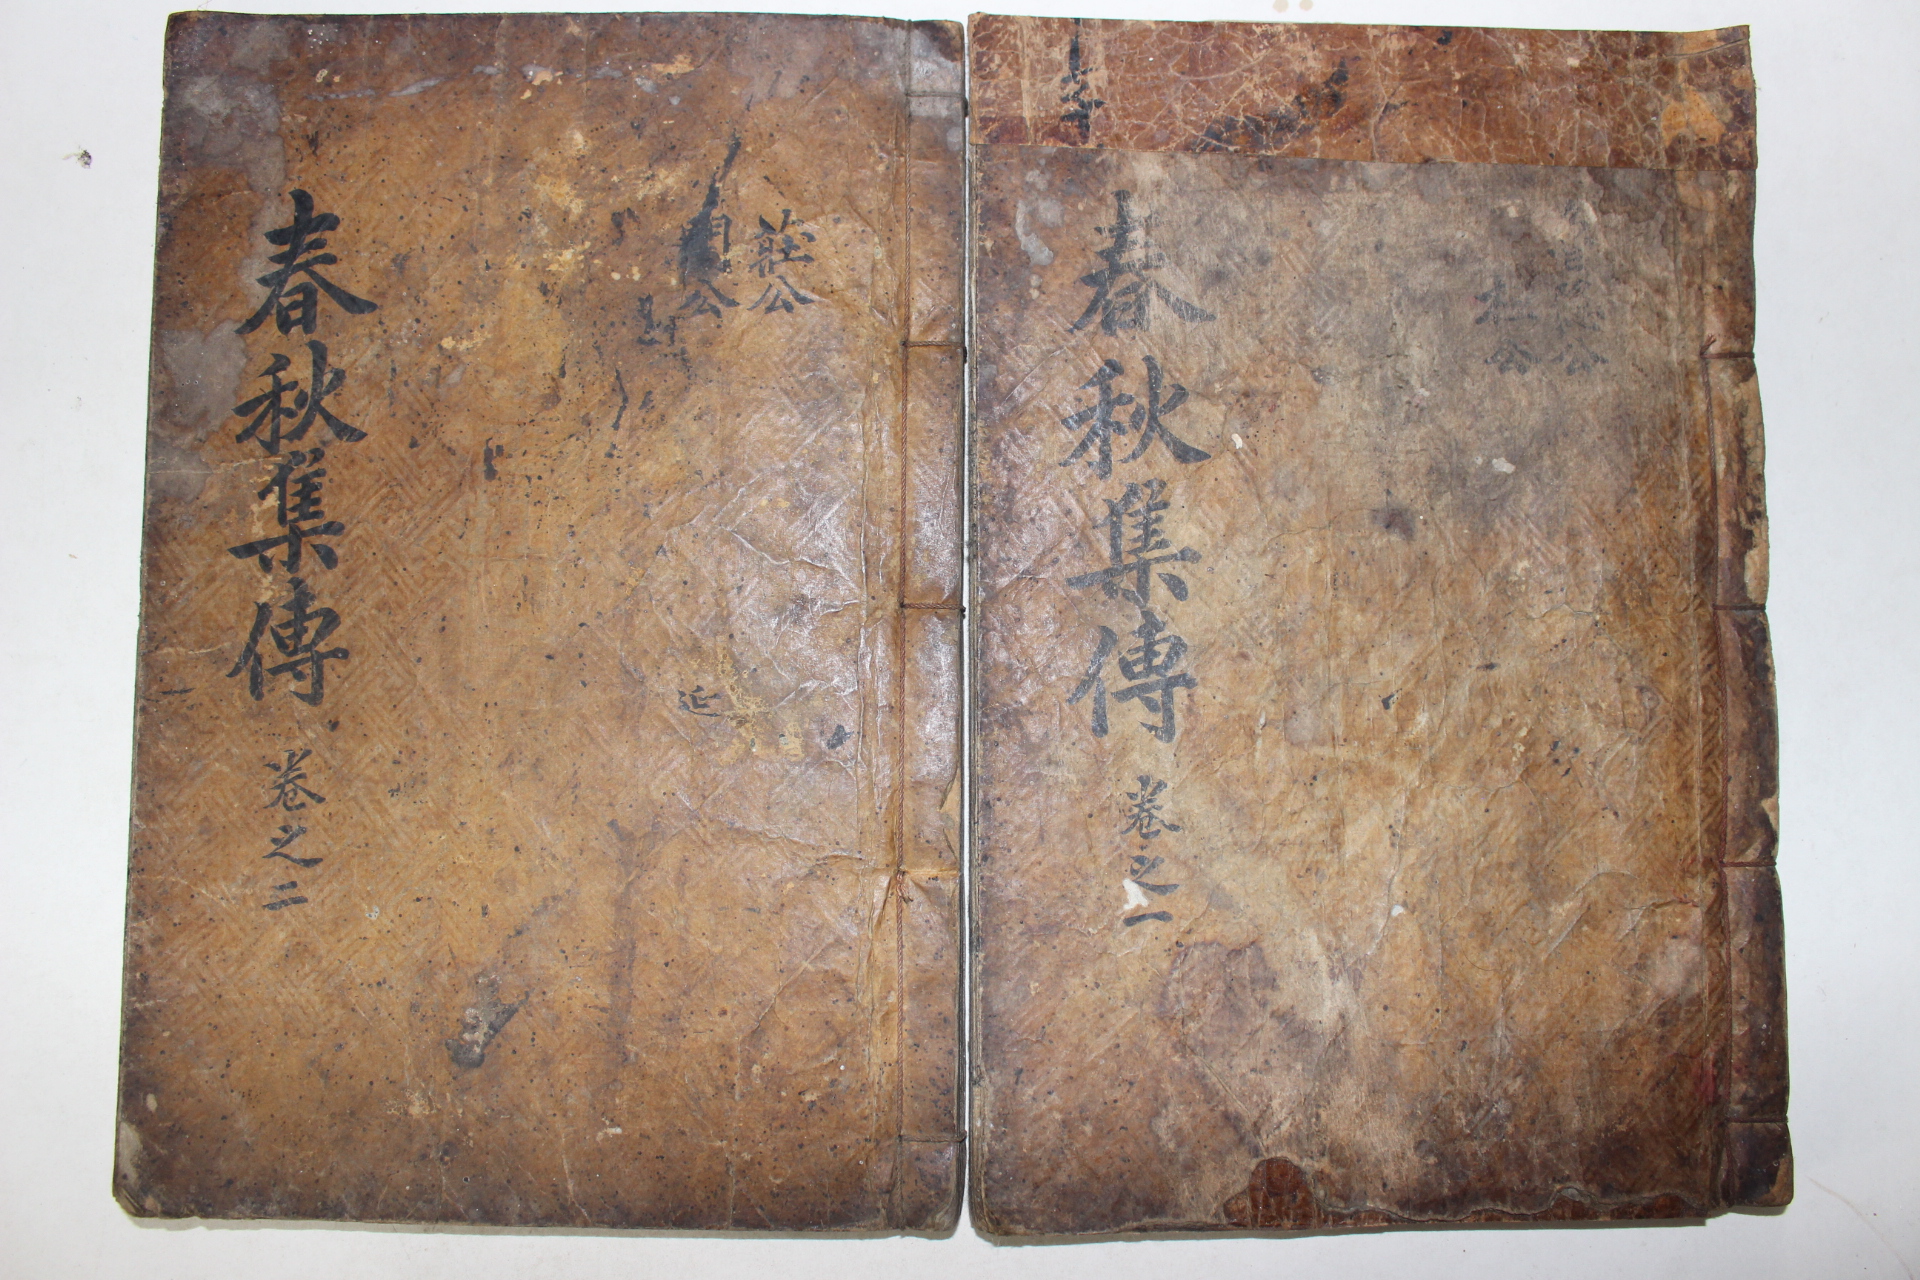 春秋集傳 卷之一
公
公
莊公
公
近
春秋集傳 卷之二